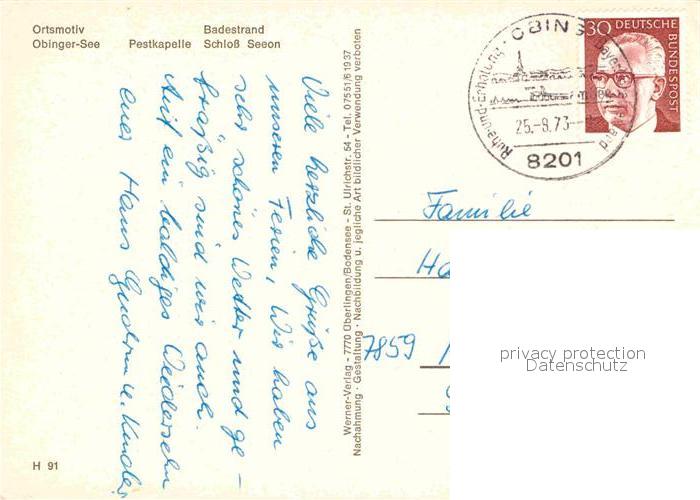 Ortsmotiv Badestrand
Obinger-See Pestkapelle Schloß Seeon
Viele herzliche Grüße aus
unseren Ferien, Wir haben
sehr schönes Wetter und ge-
fräßig sind wir auch.
Auf ein baldiges Wiedersehn
euer Hans Gudrun u. Kinder
H 91
Werner-Verlag - 7770 Überlingen/Bodensee - St. Ulrichstr. 54 - Tel. 07551/61937
Nachahmung · Gestaltung · Nachbildung u. jegliche Art bildlicher Verwendung verboten
OBING
Ruhe und Erholung
25.-9.73
8201
30 DEUTSCHE BUNDESPOST
Familie
Ha
7859
privacy protection
Datenschutz